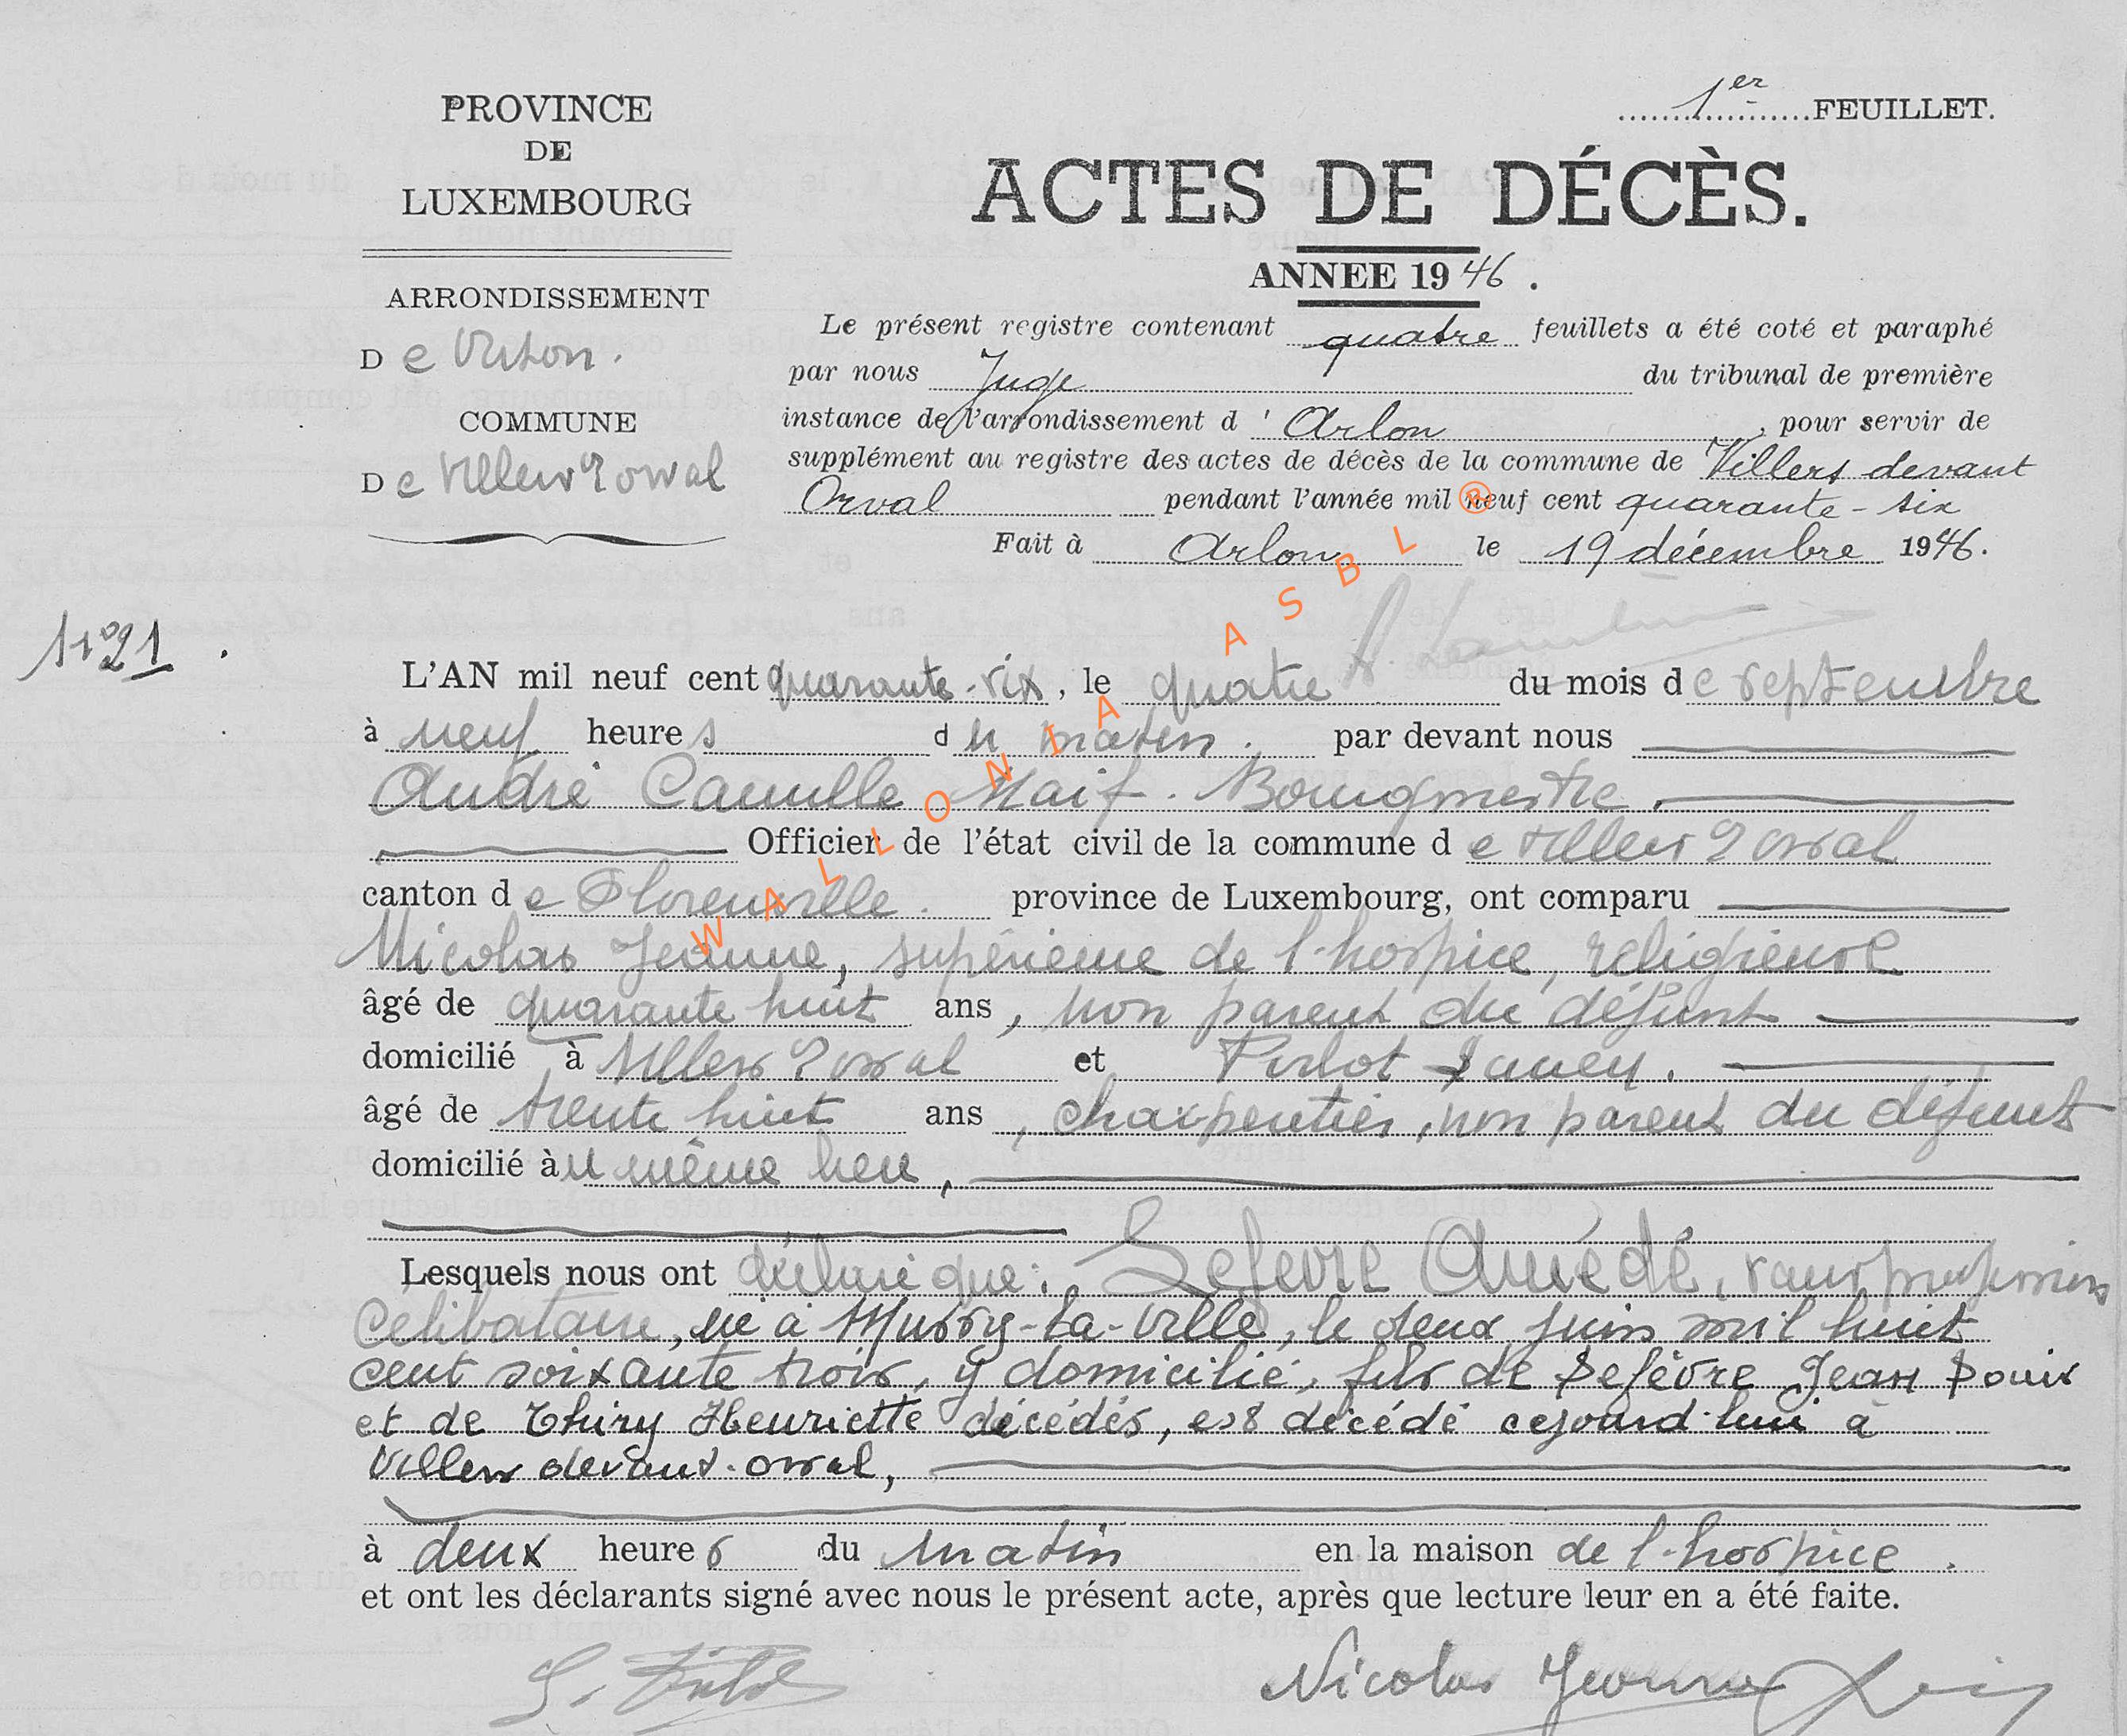 1er FEUILLET.
PROVINCE
DE
LUXEMBOURG
ARRONDISSEMENT
De Virton.
COMMUNE
De Villers d orval
ACTES DE DÉCÈS.
ANNEE 1946.
Le présent registre contenant quatre feuillets a été coté et paraphé
par nous Juge du tribunal de première
instance de l'arrondissement d'Arlon, pour servir de
supplément au registre des actes de décès de la commune de Villers devant
Orval pendant l'année mil neuf cent quarante-six
Fait à Arlon le 19 décembre 1946.
N°21.
L'AN mil neuf cent quarante-six, le quatre du mois de septembre
à neuf heures du matin. par devant nous
André Camille Naif. Bourgmestre,
Officier de l'état civil de la commune de Villers d orval
canton de Florenville. province de Luxembourg, ont comparu
Nicolas Jeanne, supérieure de l'hospice, religieuse
âgé de quarante huit ans, non parent du défunt
domicilié à Villers d orval et Pirlot
âgé de trente huit ans, charpentier, non parent du défunt
domicilié au même lieu,
Lesquels nous ont déclaré que: Lefevre Amédé, sans profession
célibataire, né à Mussy-la-Ville, le deux juin mil huit
cent soixante trois, y domicilié, fils de Lefèvre Jean Louis
et de Thiry Henriette décédés, est décédé cejourd'hui à
Villers devant-orval,
à deux heures du matin en la maison de l'hospice.
et ont les déclarants signé avec nous le présent acte, après que lecture leur en a été faite.
Nicolas Jeanne
WALLONIA ASBL ®